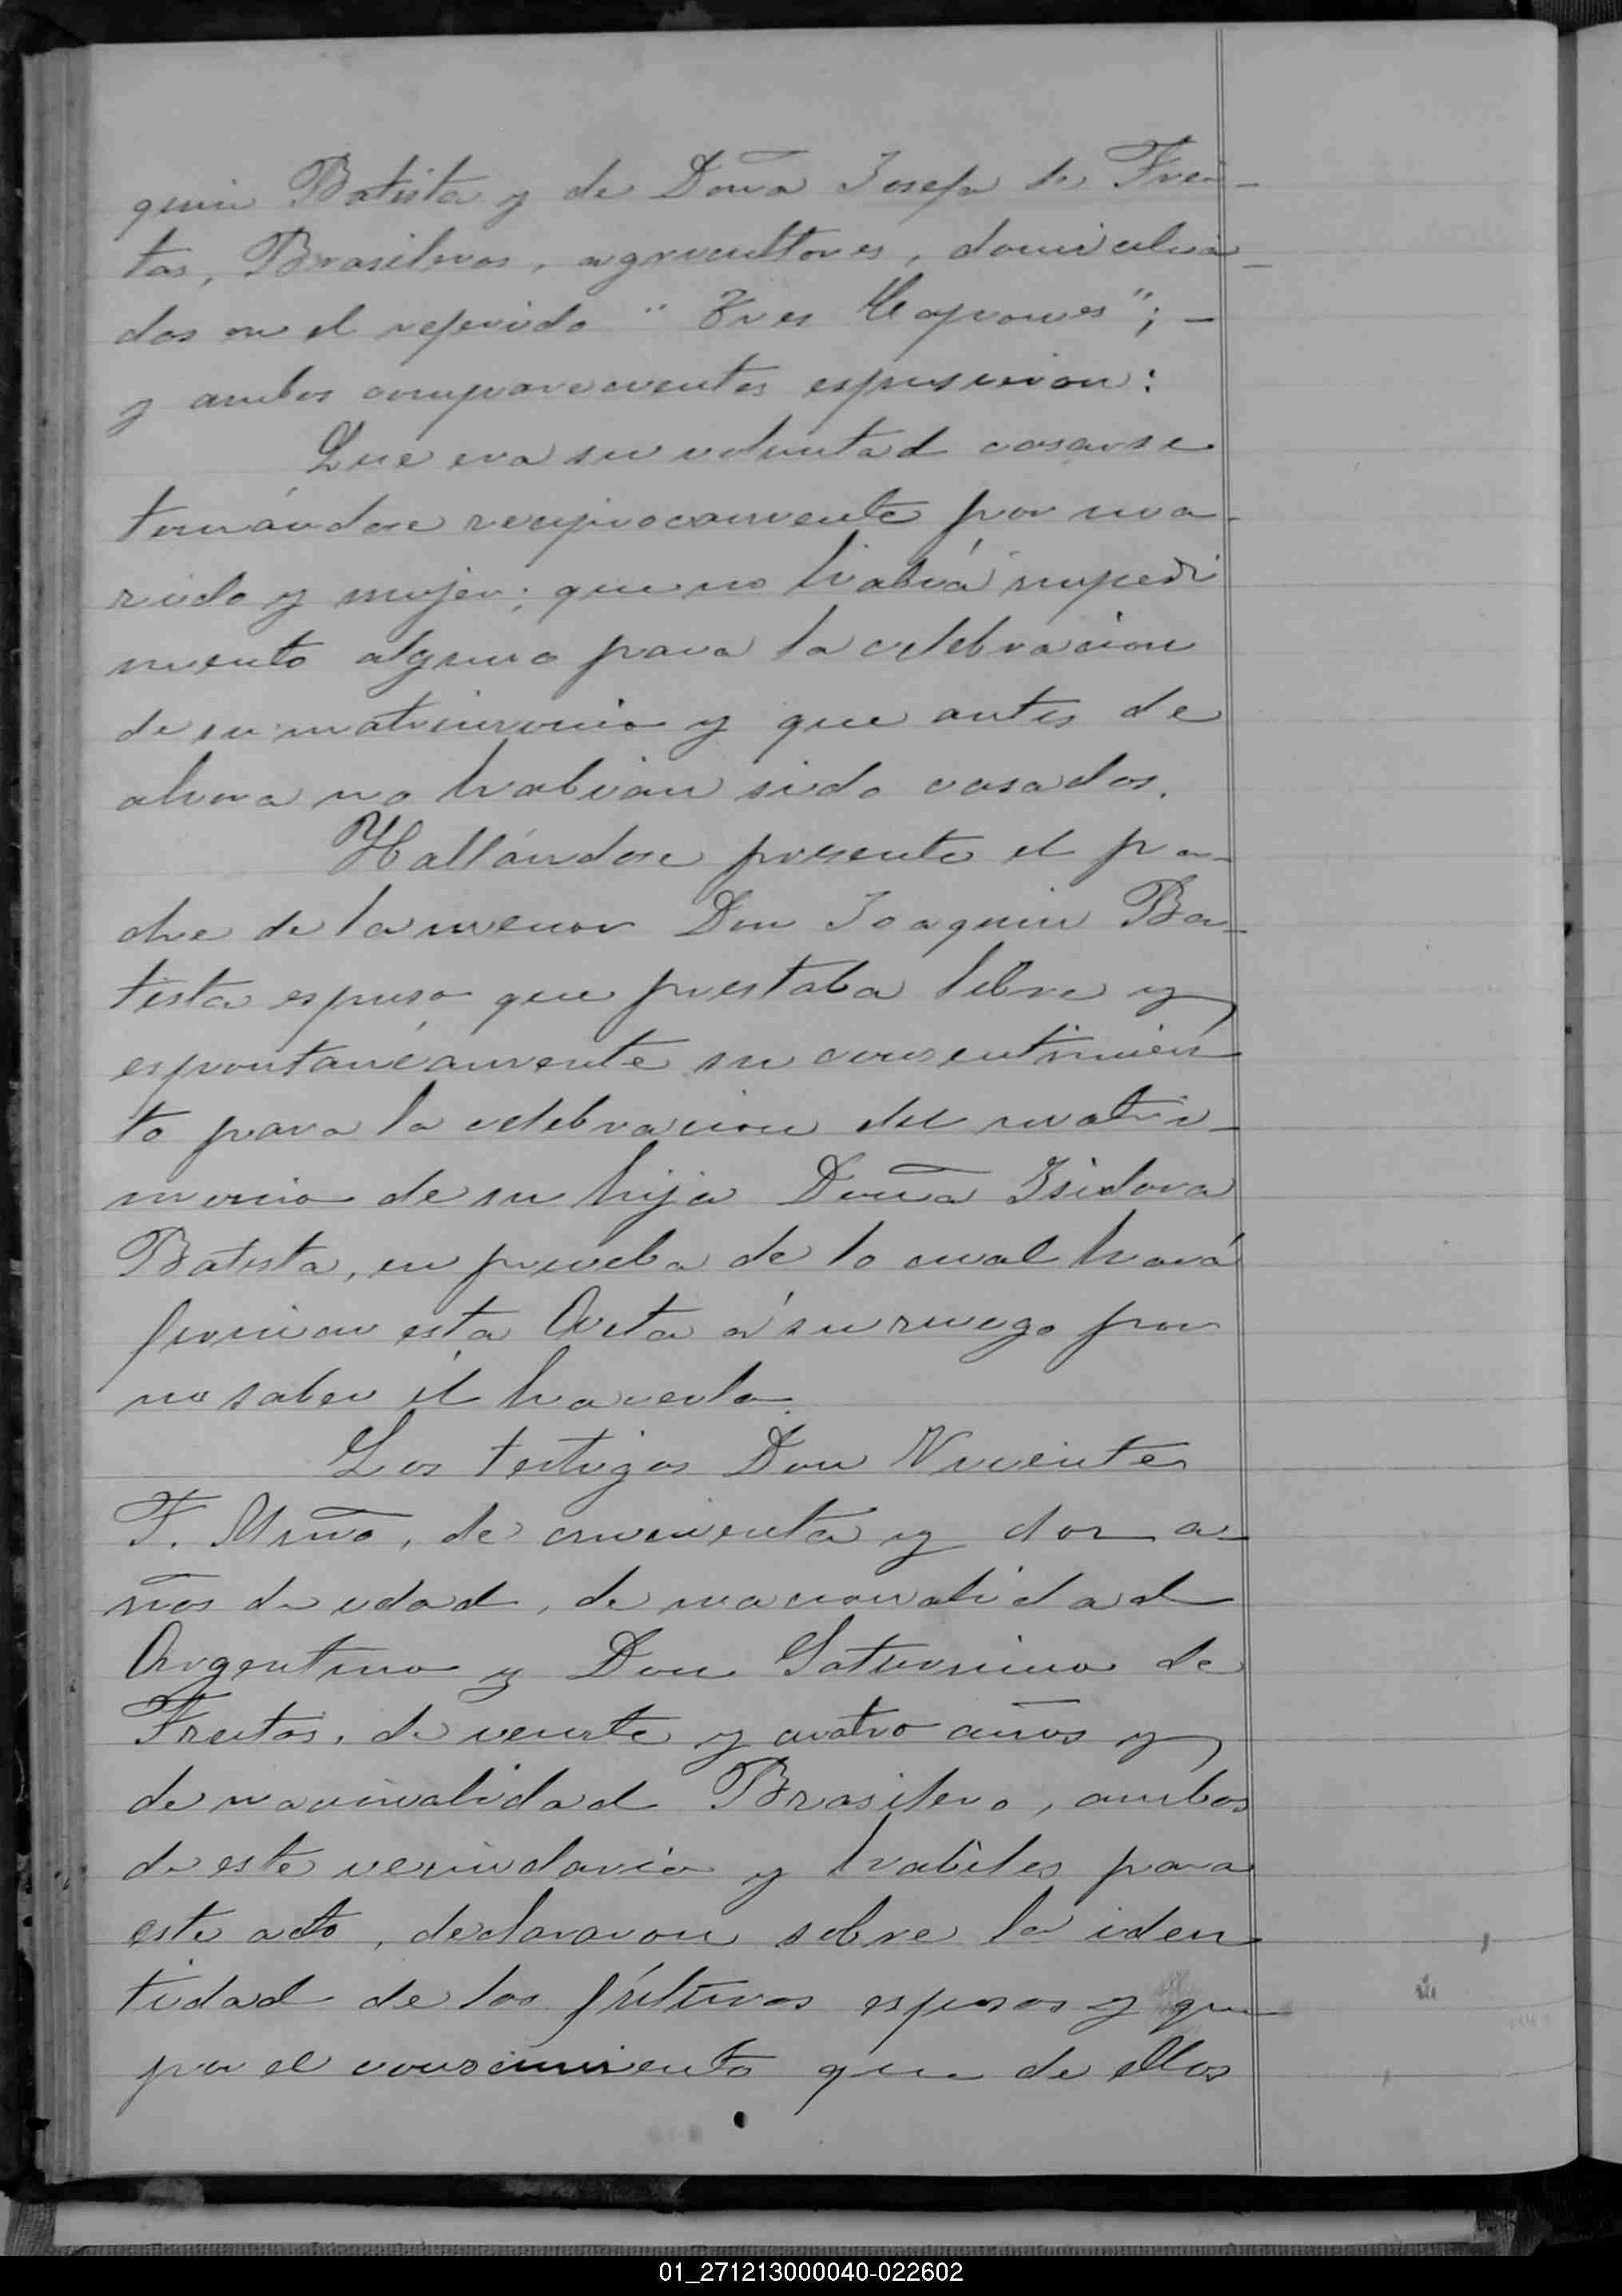 quin Batista y de Doña Josefa de Frei-
tas, Brasileros, agricultores, domicilia-
dos en el referido "Tres Capones"; -
y ambos comparecientes espusieron:
Que era su voluntad casarse
tomándose reciprocamente por ma-
rido y mujer; que no habiá impedi
mento alguno para la celebracion
de su matrimonio y que antes de
ahora no habian sido casados.
Hallándose presente el pa-
dre de la menor Don Joaquin Ba-
tista espuso que prestaba libre y
espontanéamente su consentimien
to para la celebracion del matri-
monio de su hija Doña Isidora
Batista, en prueba de lo cual hará
firmar esta Acta á su ruego por
no saber él hacerlo.
Los testigos Don Vicente
F. Miño, de cincuenta y dos a-
ños de edad, de nacionalidad
Argentino y Don Saturnino de
Freitas, de veinte y cuatro años y
de nacionalidad Brasilero, ambos
de este vecindario y habiles para
este acto, declararon sobre la iden
tidad de los fúturos esposos y que
por el conocimiento que de ellos
01_271213000040-022602